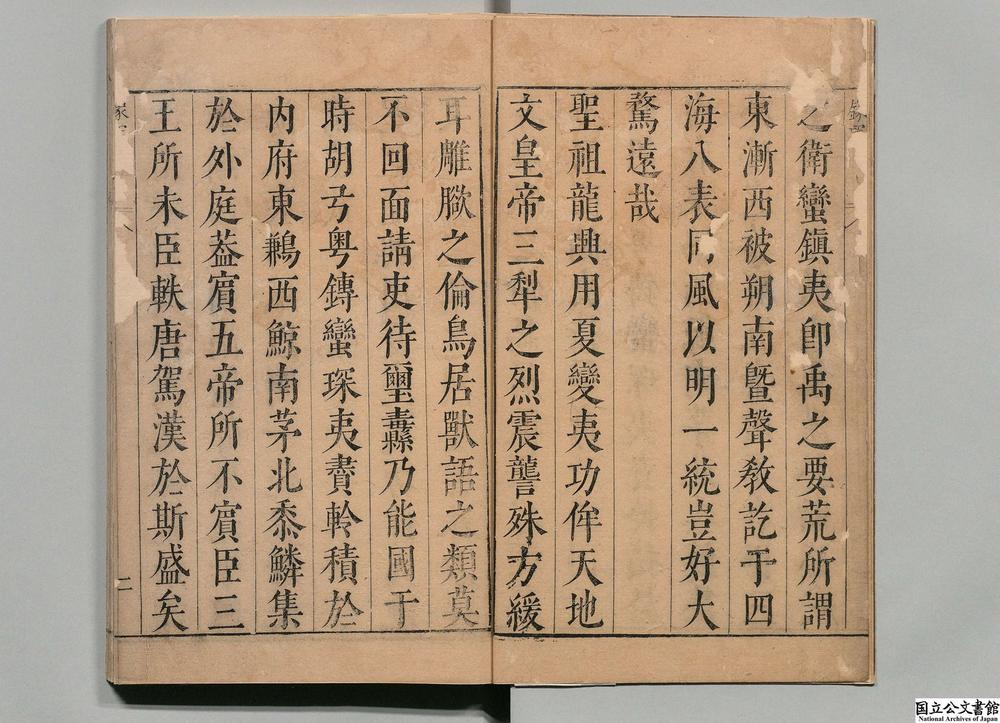 之衛蠻鎮夷卽禹之要荒所謂
東漸西被朔南曁聲敎訖于四
海八表同風以明一統豈好大
騖遠哉
聖祖龍興用夏變夷功侔天地
文皇帝三犁之烈震讋殊方緩
耳雕臙之倫鳥居獸語之類莫
不回面請吏待璽纛乃能國于
時胡弓粤鏄蠻琛夷賮軨積於
内府東鶼西鯨南茅北黍鱗集
於外庭葢賔五帝所不賔臣三
王所未臣軼唐駕漢於斯盛矣
二
国立公文書館
National Archives of Japan